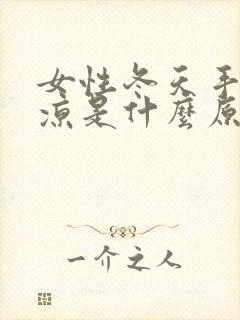 女性冬天手
凉是什麼原
一介之人